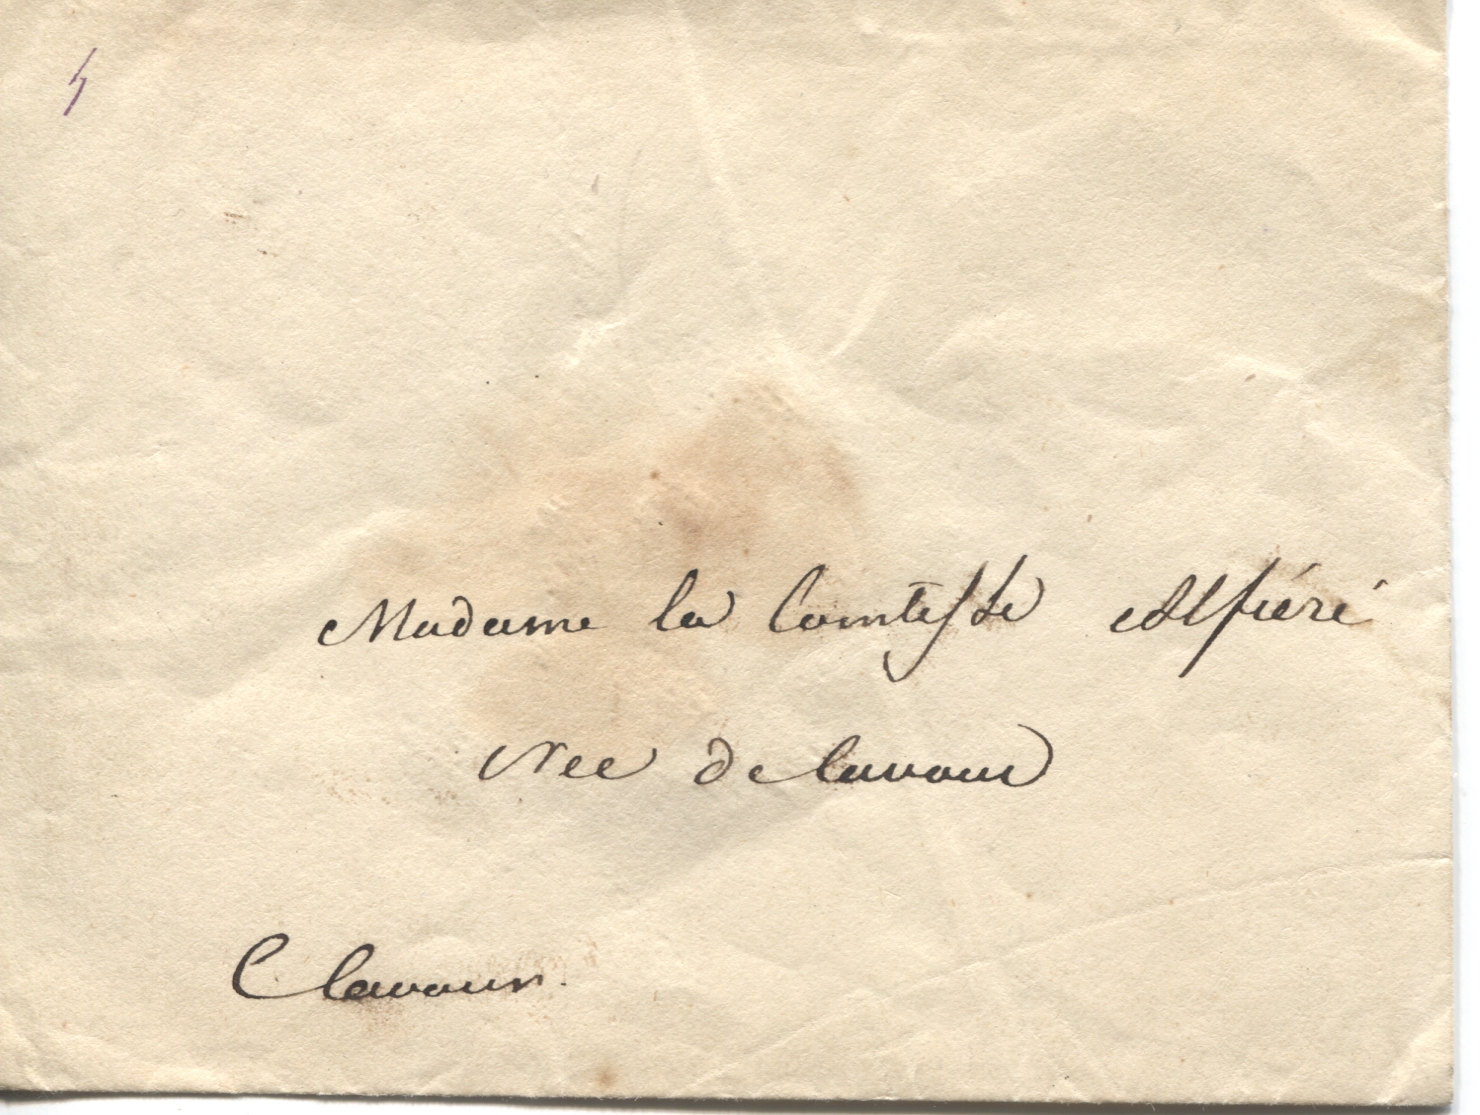 Madame la Comtesse Alfiéri
née de Cavour
C Cavour.